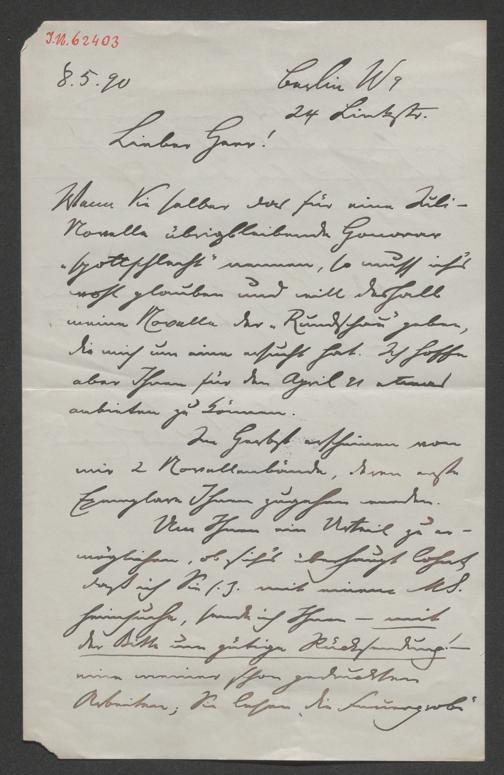 I.N. 62403
8.5.90
Berlin W9
24 Linkstr.
Lieber Herr!
Wenn Sie selber das für eine Juli-
Novelle übrigbleibende Honorar
„spottschlecht“ nennen, so muss ich's
wohl glauben und will deshalb
meine Novelle der „Rundschau“ geben,
die mich um eine ersucht hat. Ich hoffe
aber Ihnen für den April 91 etwas
anbieten zu können.
Im Herbst erscheinen von
mir 2 Novellenbände, deren erste
Exemplare Ihnen zugehen werden.
Um Ihnen ein Urteil zu er-
möglichen, ob sich's überhaupt lohnt
daß ich Sie s. Z. mit einem M.S.
heimsuche, sende ich Ihnen – mit
der Bitte um gütige Rücksendung! –
eine meiner schon gedruckten
Arbeiten; Sie lesen „die